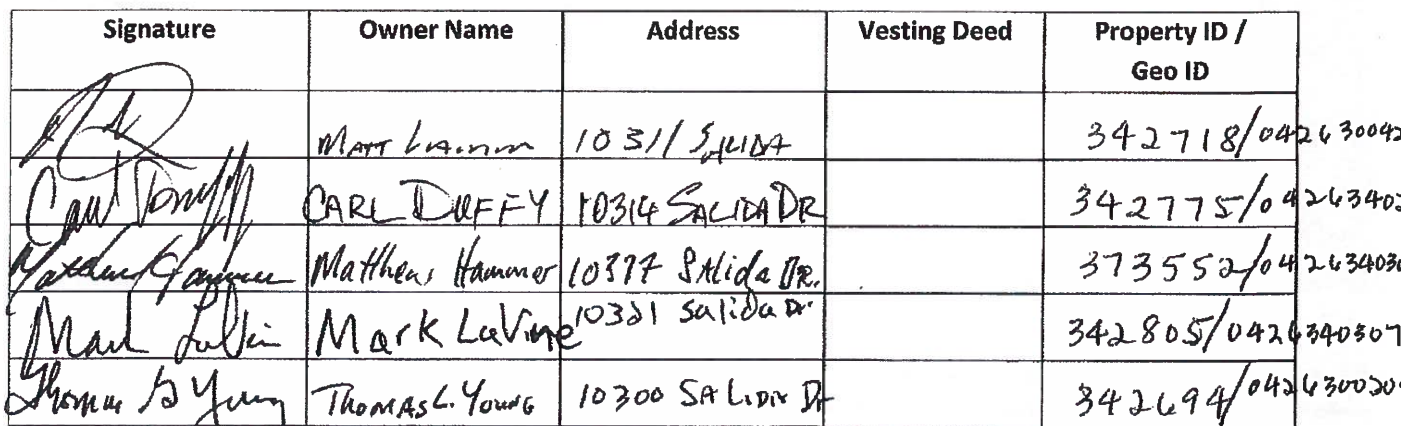 Signature Owner Name Address Vesting Deed Property ID /
Geo ID
MATT 10311 SALIDA 342718/042630042
CARL DUFFY 10314 SALIDA DR 342775/04263403
Matthew Hammer Salida DR. 373552/04263403
Mark LaVine Mark LaVine Salida Dr 342805/0426340307
Thomas Young THOMAS L. YOUNG 10300 SALIDA Dr 342694/042630020